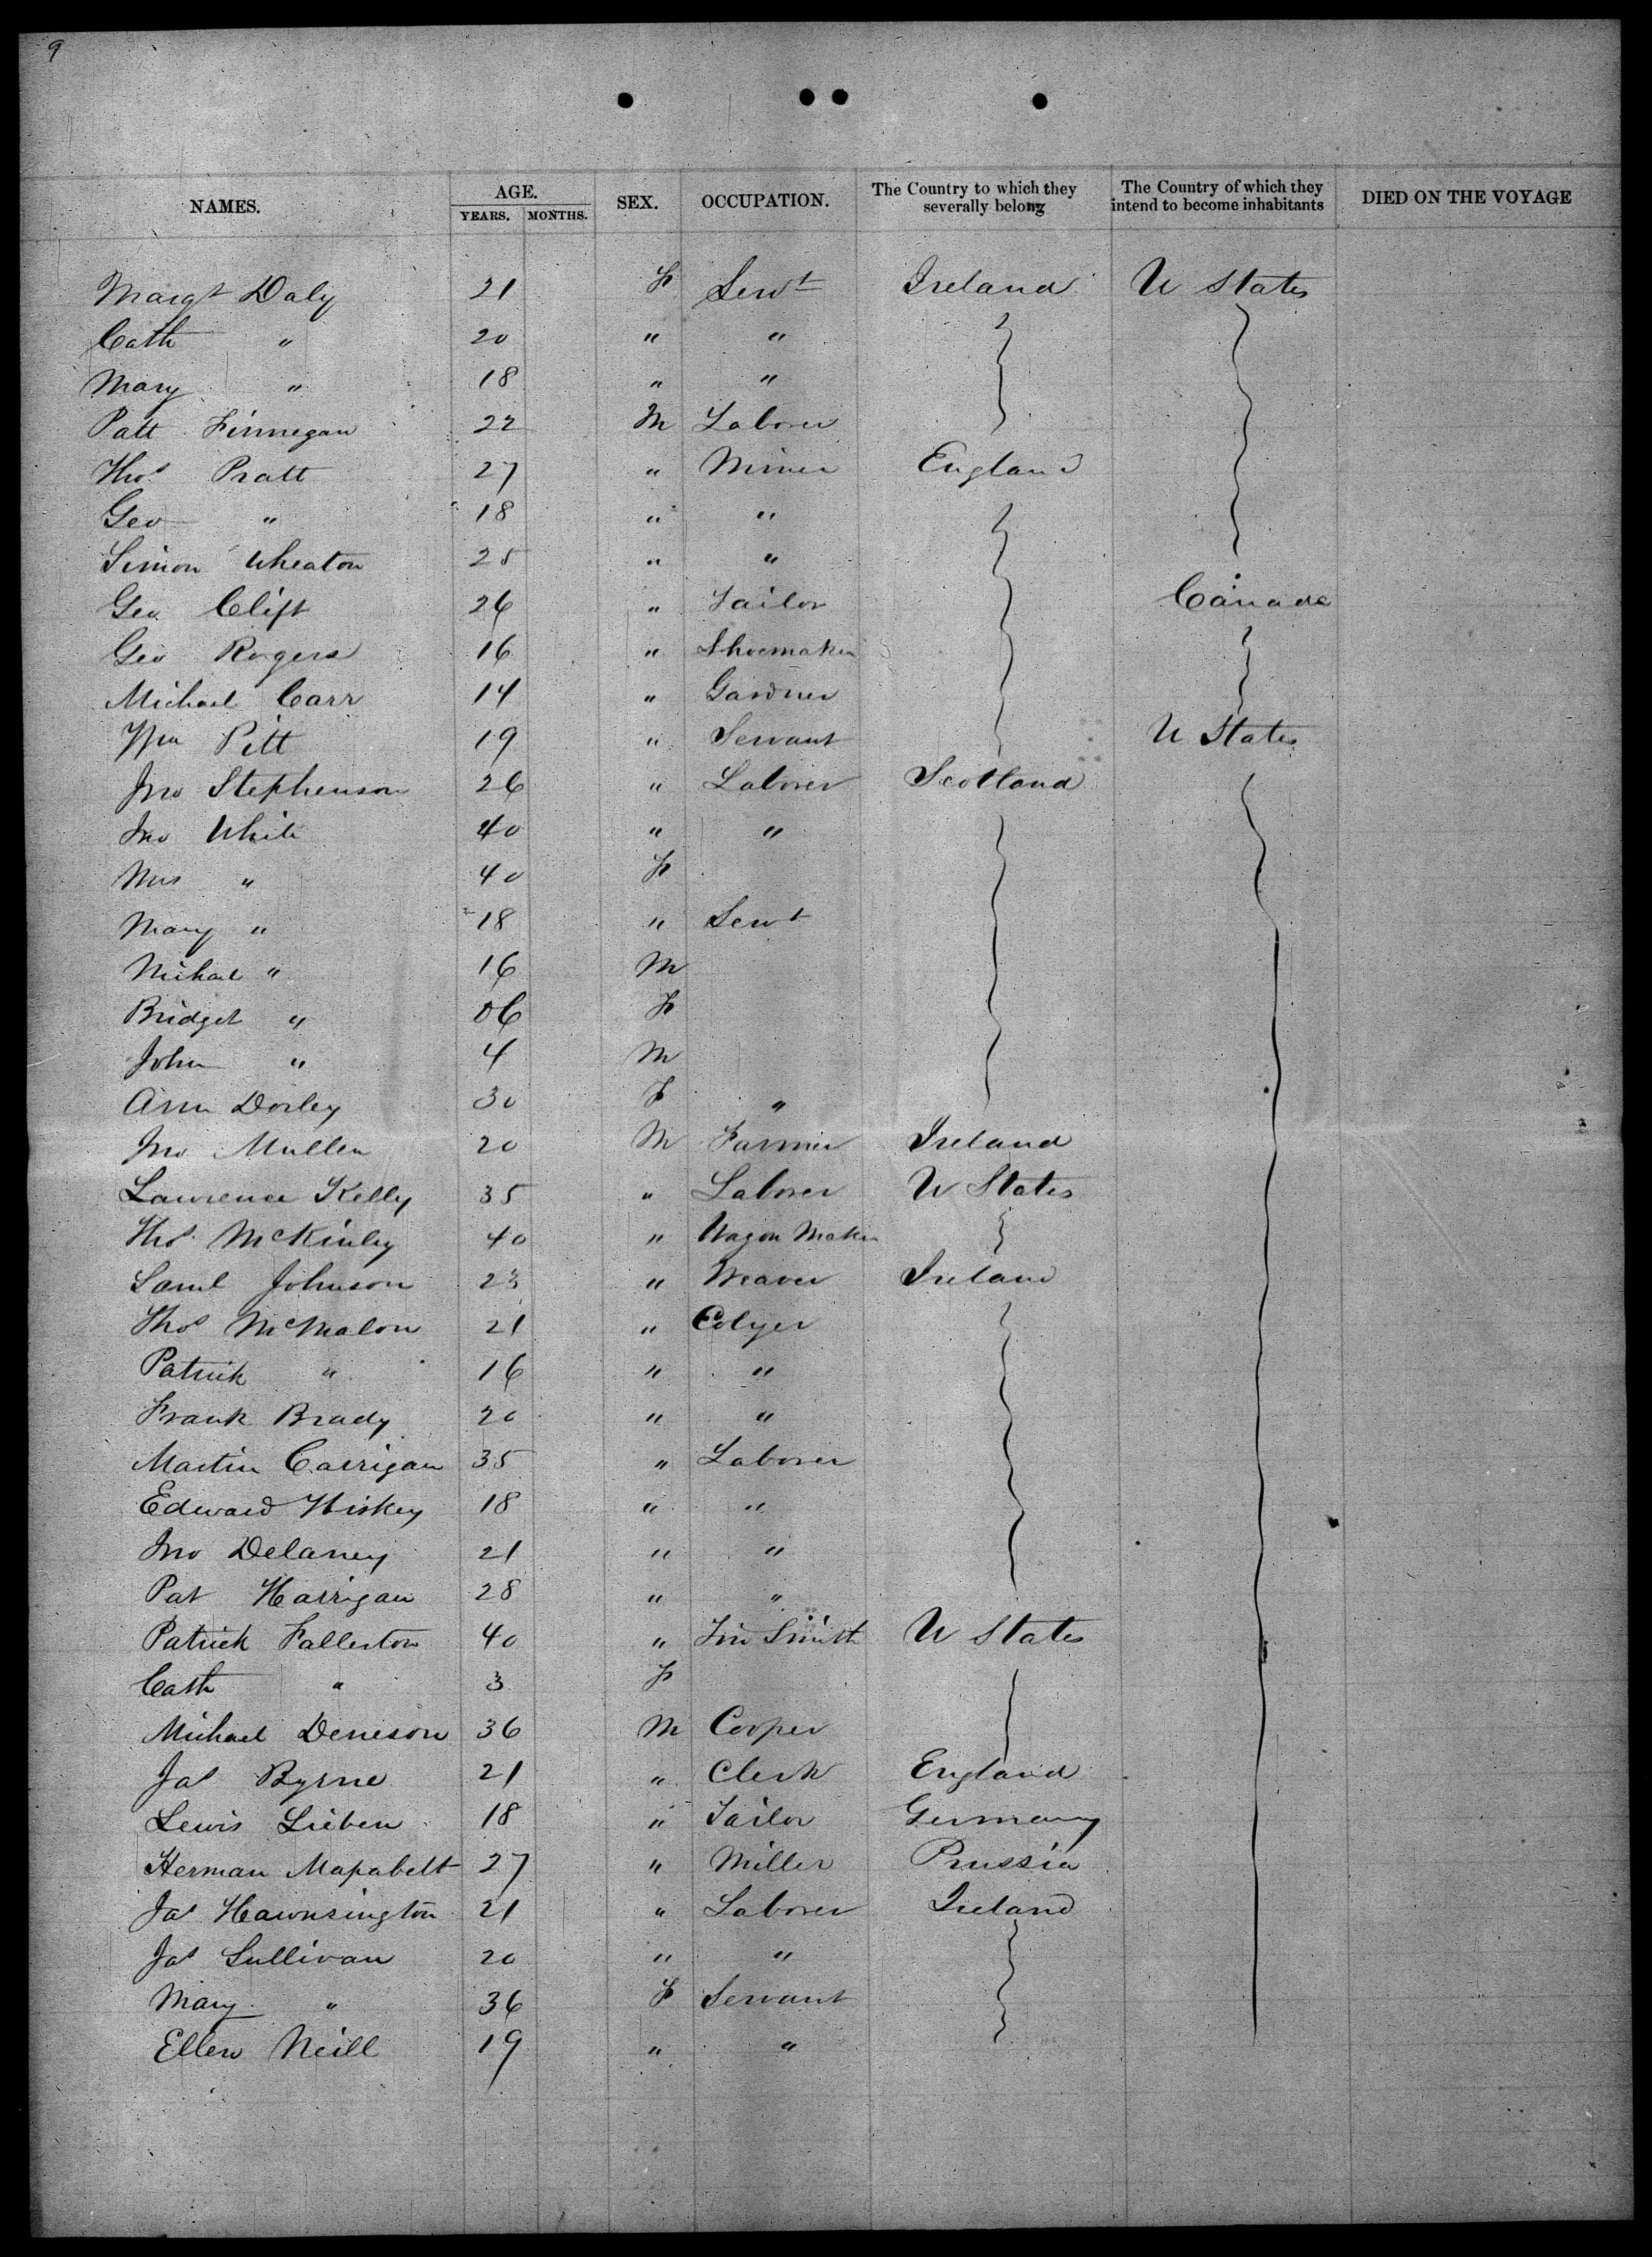 9
NAMES. AGE. YEARS. MONTHS. SEX. OCCUPATION. The Country to which they severally belong The Country of which they intend to become inhabitants DIED ON THE VOYAGE
Margt Daly 21 F Servt Ireland U States
Cath " 20 " "
Mary " 18 " "
Patt Finnegan 22 M Laborer
Thos Pratt 27 " Miner England
Geo " 18 " "
Simon Wheaton 25 " "
Geo Clift 26 " Tailor Canada
Geo Rogers 16 " Shoemaker
Michael Carr 14 " Gardner
Wm Pitt 19 " Servant U States
Jno Stephenson 26 " Laborer Scotland
Jno White 40 " "
Mrs " 40 F
Mary " 18 " Servt
Michael " 16 M
Bridget " 06 F
John " 4 M
Ann Dorley 30 F "
Jno Mullen 20 M Farmer Ireland
Lawrence Kelly 35 " Laborer U States
Thos McKinley 40 " Wagon Maker
Saml Johnson 23 " Weaver Ireland
Thos McMalon 21 " Colyer
Patrick " 16 " "
Frank Brady 20 " "
Martin Carrigan 35 " Laborer
Edward Hiskey 18 " "
Jno Delaney 21 " "
Pat Harrigan 28 " "
Patrick Fallerton 40 " Tin Smith U States
Cath " 3 F
Michael Deneson 36 M Cooper
Jas Byrne 21 " Clerk England
Lewis Lieben 18 " Tailor Germany
Herman Mapabelt 27 " Miller Prussia
Jas Hawnsington 21 " Laborer Ireland
Jas Sullivan 20 " "
Mary " 36 F Servant
Ellen Neill 19 " "